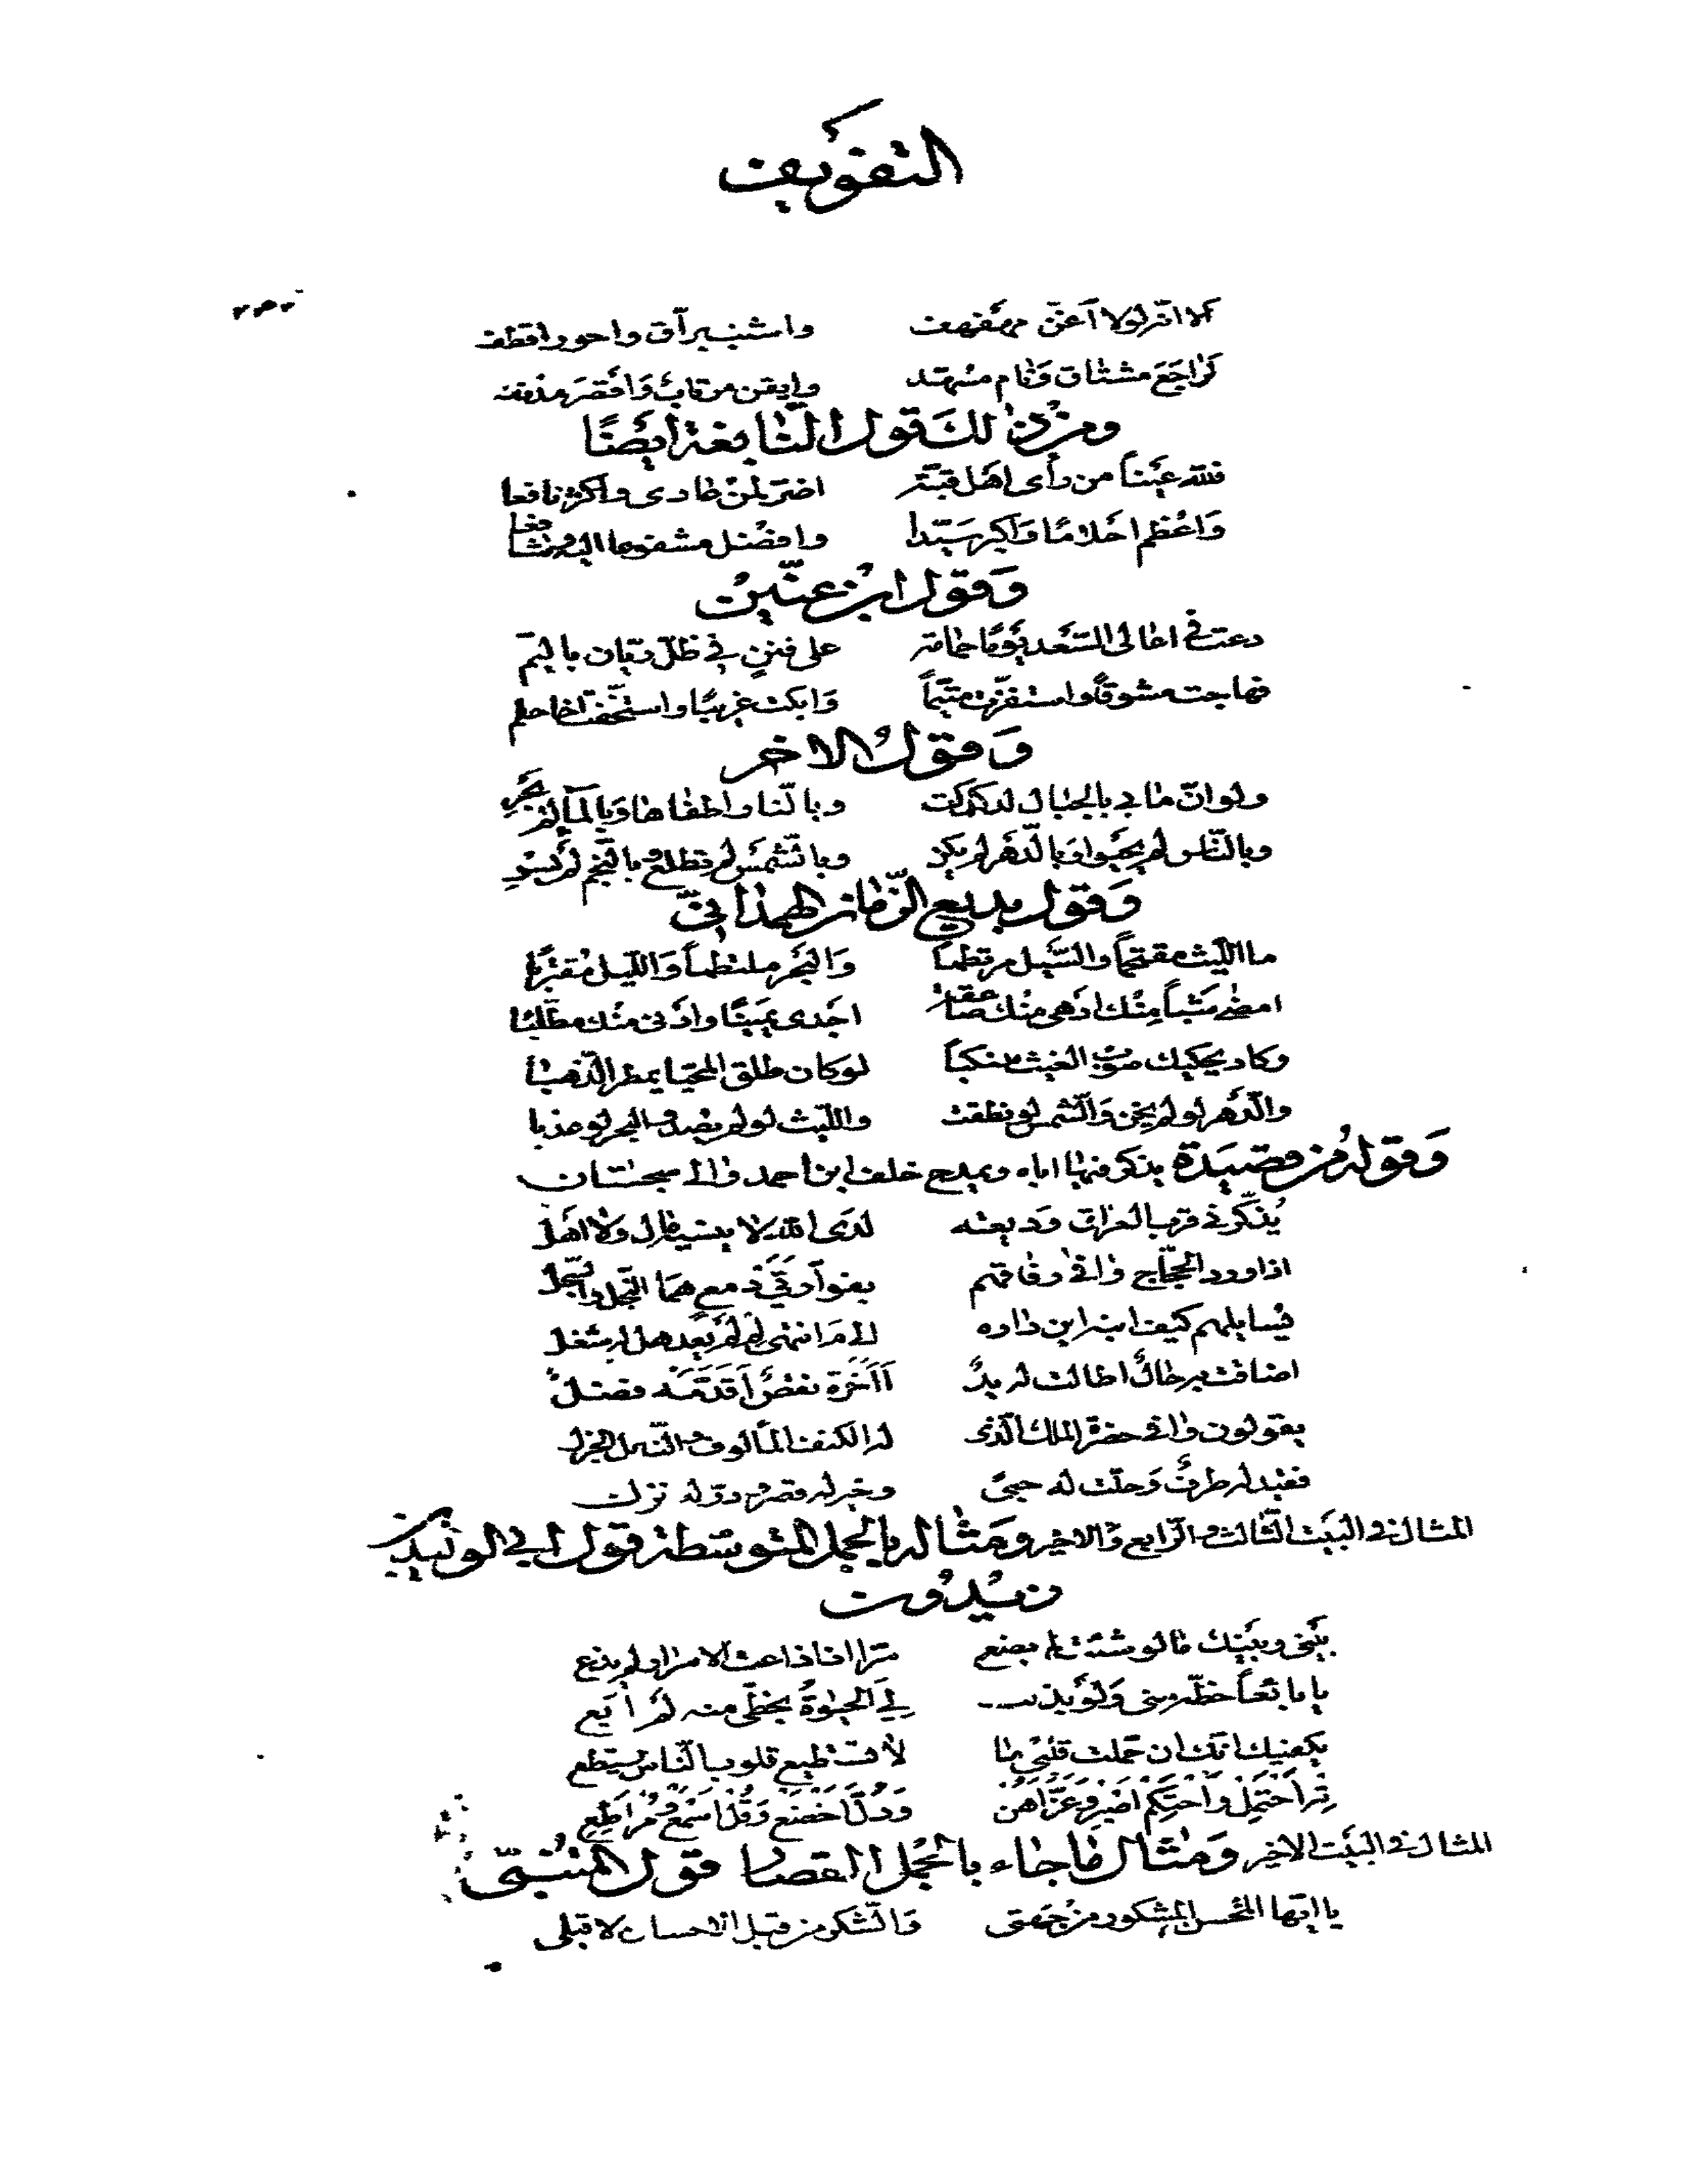 التفويف
كلا انه لولا اغن مهفهف واشنب براق واحور اقطف
لراجع مشتاق ونام مسهد وايقن مرتاب واقصر مدنف
ومن ذلك قول النابغة ايضًا
فلله عينا من رأى اهل قبة اضر لمن عادى واكثر نافعا
وَاعْظم احلامًا وَاكبر سَيّدا وافضل مشفوعا اليه وشافعا
وَقول ابن عنين
دعت في اعالى السّغد يومًا حمامة على فننٍ في ظلّ ريان باليم
فهاجت مشوقًا واستفزت متيّماً وَابكت غريبًا واستخفت اخا حلم
وَقولُ الاخر
ولو انّ ما بي بالجبال لدكدكت وبالنّار اطفاها وَبالمآء لم يجرِ
وبالنّاس لم يحيوا وَبالدّهر لم يكن وبالشّمس لم تطلع وبالنّجم لم يسرِ
وَقول بديع الزّمان الهمذانيّ
ما اللّيث مقتحماً والسّيل مرتطماً وَالبحر ملتطماً وَاللّيل مقتربا
امضى شباً مِنْك ادهى منْك صاعقة اجْدى يمينًا وادْنى منْك مطّلبًا
وكاد يحكيك صوب الغيث منسكباً لو كان طلق المحيّا يمطر الذّهبا
والدّهر لو لم يخن وَالشّمس لو نطقت واللّيث لو لم يصد والبحر لو عذبا
وَقوله من قصيدة يذكر فيها اباه ويمدح خلف ابن احمد والى سجستان
يُذكّرني قرب العراق وديعته لدى الله لا يسليه مال ولا اهل
اذا ورد الحجّاج وافى رفاقهم بفوّارتي دمع هما النّجل والسّجل
فيسايلهم كيف ابنه اين داره الى مَ انتهى لِم لَم يعد هل له شغل
اضاقت به حالٌ اطالت له يدٌ أَأَخّرَهُ نقصٌ أَقَدّمَهُ فضلٌ
يقولون وافى حضرة الملك الّذى له الكنف المألوف والنّايل الجزل
فقيد له طرفٌ وَحلّت له حبىً وخير له قصر ودرّ له نزل
المثال في البَيت الثّالث والرّابع وَالاخير وَمثاله بالجمل المتوسّطة قول ابي الوليد بن
زيدون
بيْني وبيْنك ما لو شئت لم يضع سرّ اذا ذاعت الاسرار لم يذع
يا بايعاً حظّه منى وَلو بذلت لِي الحيوةُ بحظّى منه لم ابع
يكفيك انّك ان حمّلت قلبي ما لا تستطيع قلوب النّاس يستطع
تِه اَحتمل وَاحتكم اصبر وَعزّ اهن وَدلّ اخضع وَقل اسمع ومر اطع
المثال في البيت الاخير وَمثال ما جاء بالجُمل القصار قول المتنبّى
يا ايّها المحسن المشكور من جهتى وَالشّكر من قبل الاحسان لا قبلى